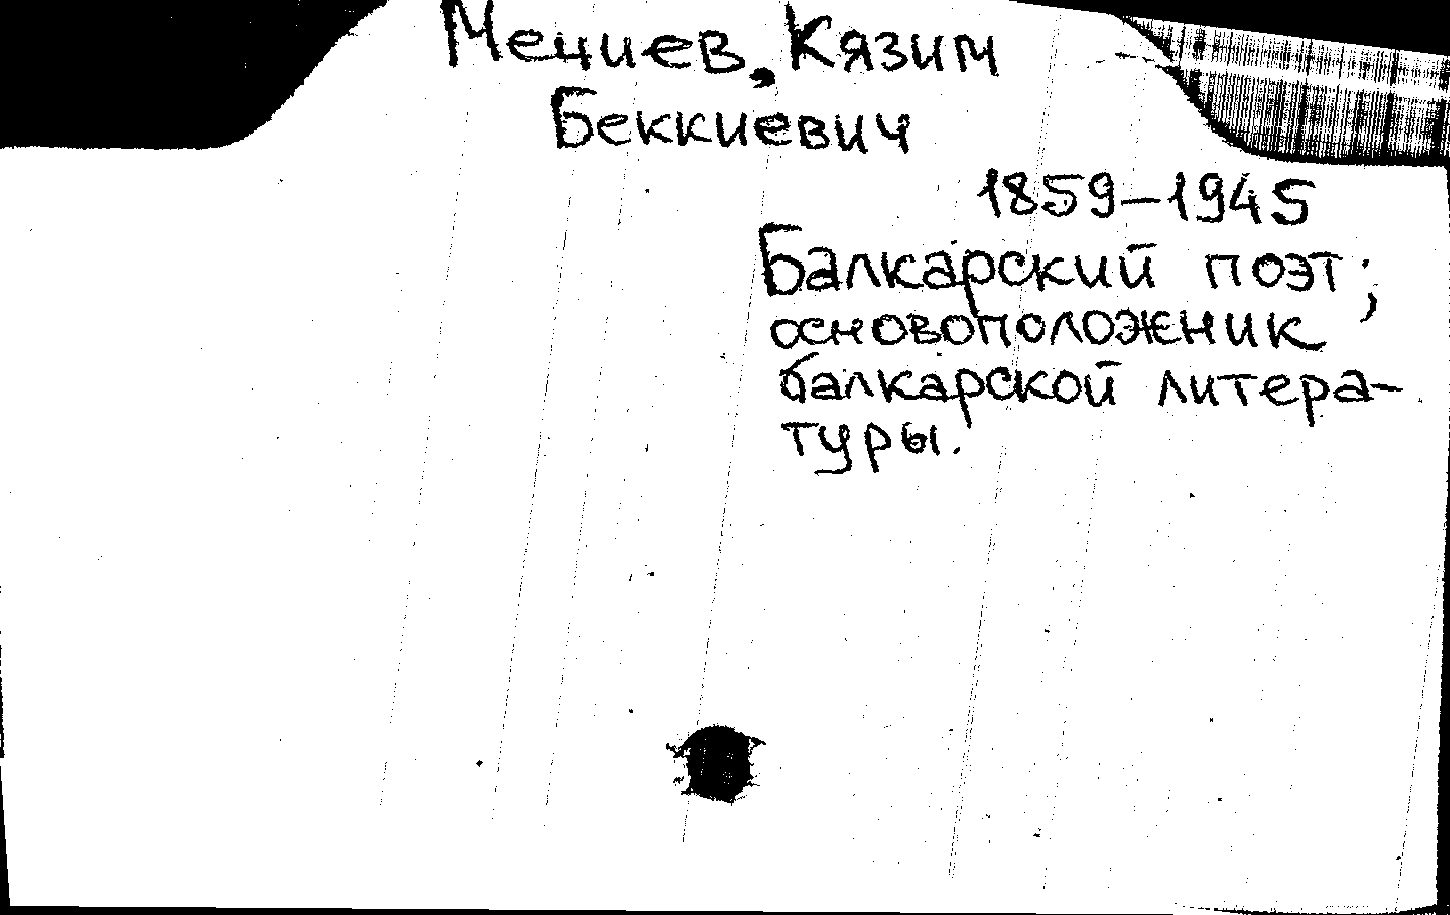 Мечиев, Кязим
Беккиевич
1859–1945
Балкарский поэт;
основоположник
балкарской литера-
туры.